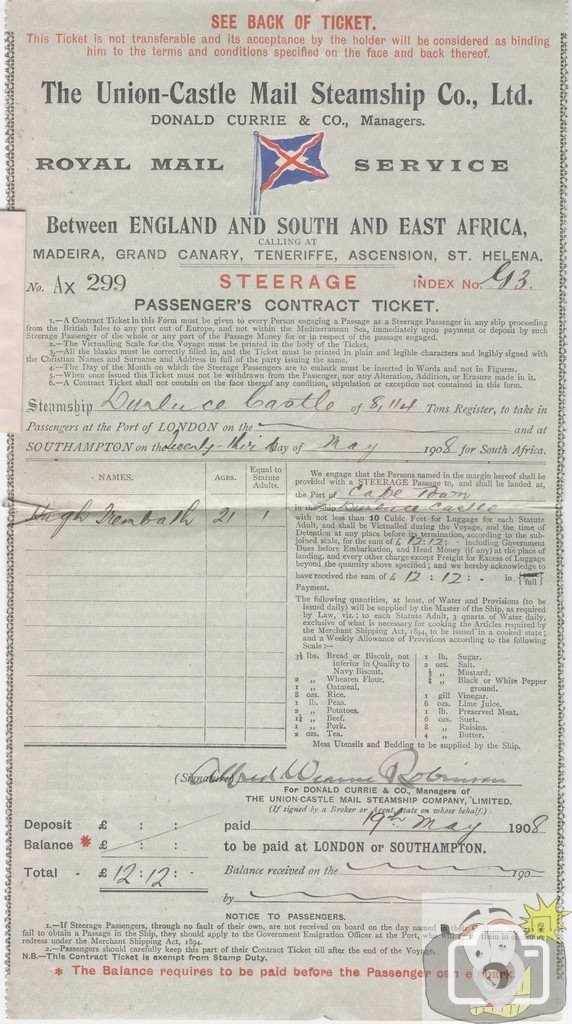 SEE BACK OF TICKET.
This Ticket is not transferable and its acceptance by the holder will be considered as binding
him to the terms and conditions specified on the face and back thereof.
The Union-Castle Mail Steamship Co., Ltd.
DONALD CURRIE & CO., Managers.
ROYAL MAIL SERVICE
Between ENGLAND AND SOUTH AND EAST AFRICA,
CALLING AT
MADEIRA, GRAND CANARY, TENERIFFE, ASCENSION, ST. HELENA.
No. AX 299 STEERAGE INDEX No. G3.
PASSENGER'S CONTRACT TICKET.
1.—A Contract Ticket in this Form must be given to every Person engaging a Passage as a Steerage Passenger in any ship proceeding
from the British Isles to any port out of Europe, and not within the Mediterranean Sea, immediately upon payment or deposit by such
Steerage Passenger of the whole or any part of the Passage Money for or in respect of the passage engaged.
2.—The Victualling Scale for the Voyage must be printed in the body of the Ticket.
3.—All the blanks must be correctly filled in, and the Ticket must be printed in plain and legible characters and legibly signed with
the Christian Names and Surname and Address in full of the party issuing the same.
4.—The Day of the Month on which the Steerage Passengers are to embark must be inserted in Words and not in Figures.
5.—When once issued this Ticket must not be withdrawn from the Passenger, nor any Alteration, Addition, or Erasure made in it.
6.—A Contract Ticket shall not contain on the face thereof any condition, stipulation or exception not contained in this form.
Steamship Durluce Castle of 8,114 Tons Register, to take in
Passengers at the Port of LONDON on the and at
SOUTHAMPTON on the twenty-third day of May 1908 for South Africa.
NAMES. AGES. Equal to Statute Adults.
Hugh Trembath 21 1
We engage that the Persons named in the margin hereof shall be
provided with a STEERAGE Passage to, and shall be landed at,
the Port of Cape Town
in the Ship Durluce Castle
with not less than 10 Cubic Feet for Luggage for each Statute
Adult, and shall be Victualled during the Voyage, and the time of
Detention at any place before its termination, according to the sub-
joined scale, for the sum of £ 12:12:- including Government
Dues before Embarkation, and Head Money (if any) at the place of
landing, and every other charge except Freight for Excess of Luggage
beyond the quantity above specified; and we hereby acknowledge to
have received the sum of £ 12:12:- in full
Payment.
The following quantities, at least, of Water and Provisions (to be
issued daily) will be supplied by the Master of the Ship, as required
by Law, viz.: to each Statute Adult, 3 quarts of Water daily,
exclusive of what is necessary for cooking the Articles required by
the Merchant Shipping Act, 1894, to be issued in a cooked state;
and a Weekly Allowance of Provisions according to the following
Scale:—
3½ lbs. Bread or Biscuit, not
inferior in Quality to
Navy Biscuit.
2 „ Wheaten Flour.
1 „ Oatmeal.
8 ozs. Rice.
1 lb. Peas.
2 „ Potatoes.
1¼ „ Beef.
1 „ Pork.
2 ozs. Tea.
1 lb. Sugar.
2 ozs. Salt.
½ „ Mustard.
¼ „ Black or White Pepper
ground.
1 gill Vinegar.
6 ozs. Lime Juice.
1 lb. Preserved Meat.
6 ozs. Suet.
8 „ Raisins.
4 „ Butter.
Mess Utensils and Bedding to be supplied by the Ship.
(Signature) Alfred Robinson
For DONALD CURRIE & CO., Managers of
THE UNION-CASTLE MAIL STEAMSHIP COMPANY, LIMITED.
(If signed by a Broker or Agent, state on whose behalf.)
Deposit £ : : paid 19th May 1908
Balance * £ : : to be paid at LONDON or SOUTHAMPTON.
Total - £ 12:12:- Balance received on the 190
by
NOTICE TO PASSENGERS.
1.—If Steerage Passengers, through no fault of their own, are not received on board on the day named in their
fail to obtain a Passage in the Ship, they should apply to the Government Emigration Officer at the Port, who will them in
redress under the Merchant Shipping Act, 1894.
2.—Passengers should carefully keep this part of their Contract Ticket till after the end of the Voyage.
N.B.—This Contract Ticket is exempt from Stamp Duty.
* The Balance requires to be paid before the Passenger can embark.